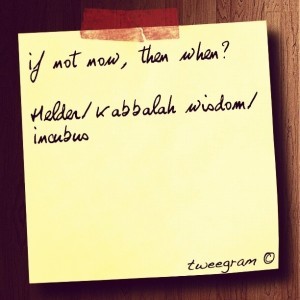 if not now, then when?
Helder/ Kabbalah wisdom/
incubus
tweegram ©